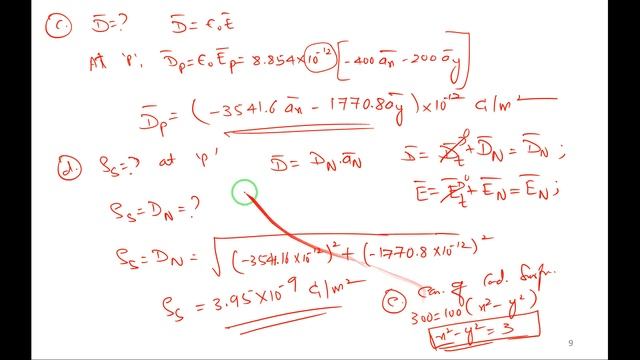 (c). D̄=? D̄ = ε₀Ē
At 'p', D̄p = ε₀Ēp = 8.854×10⁻¹² [-400 āx - 200 āy]
D̄p = (-3541.6 āx - 1770.8 āy)×10⁻¹² C/m²
(d). ρs=? at 'p' D̄ = DN·āN D̄ = D̄t⁰ + D̄N = D̄N ;
ρs = DN = ? Ē = Ēt⁰ + ĒN = ĒN ;
ρs = DN = √(-3541.6×10⁻¹²)² + (-1770.8×10⁻¹²)²
ρs = 3.95×10⁻⁹ C/m²
(e) of
300=100(x²-y²)
x²-y²=3
9